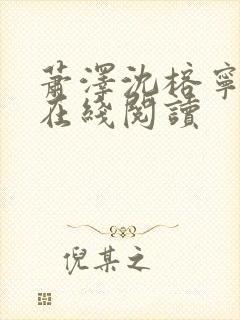 萧澤沈榕寧
在綫閱讀
倪某之